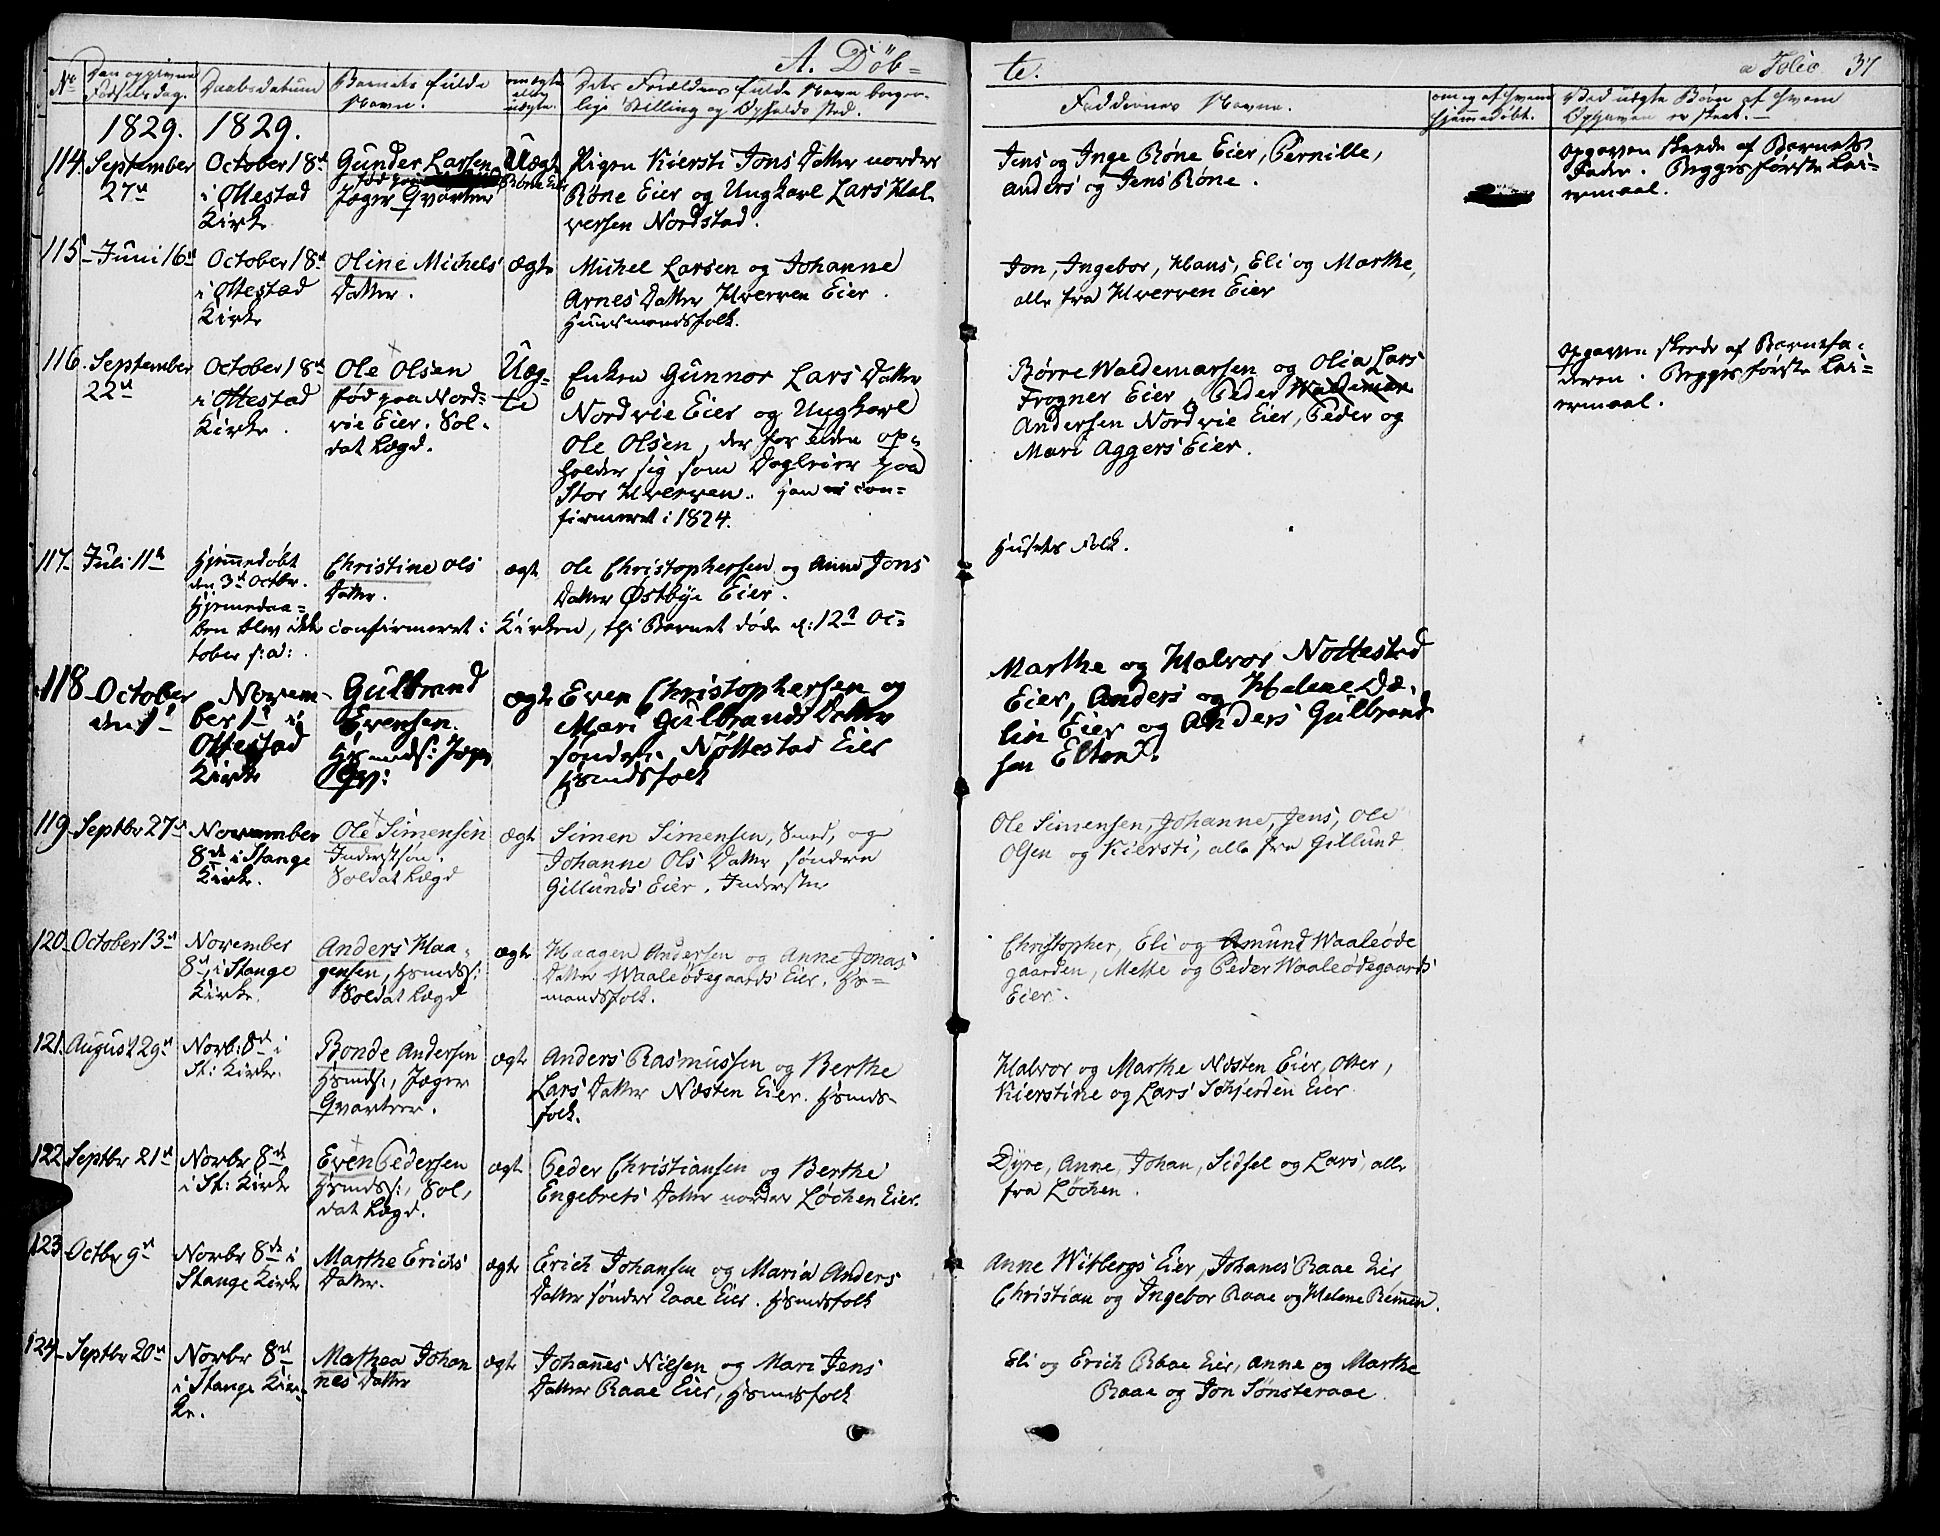 A. Döb=
te.
a Folio 37
No
Den opgivne Fødselsdag.
Daabsdatum
Barnets fulde Navn.
om ægte eller uægte.
Dets Forældres fulde Navn borger-
lige Stilling og Opholds Sted.
Faddernes Navne.
om og af hvem hjemmedøbt.
Ved uægte Børn af hvem
Opgaven er skeet.
1829. 1829.
114. September 27de
October 18de
i Ottestad
Kirke
Gunder Larsen
Jæger Qvarteer
Uægt
Pigen Kiersti Jons Datter nordre
Røne Eier og Ungkarl Lars Hal-
versen Nordstad.
Jens og Inge Røne Eier, Pernille,
Anders og Jens Røne.
Opgaven skeede af Barnets
Fader. Begges første Lei-
ermaal.
115 Juni 16de
October 18de
i Ottestad
Kirke
Oline Michels
Datter.
ægte
Michel Larsen og Johanne
Arnes Datter Hverven Eier.
Huusmandsfolk.
Jon, Ingebor, Hans, Eli og Marthe,
alle fra Hverven Eier
116. September
22de
October 18de
i Ottestad
Kirke.
Ole Olsen
født paa Nord=
vie Eier. Sol-
dat Lægd.
Uæg-
te
Enken Gunnor Lars Datter
Nordvie Eier og Ungkarl
Ole Olsen, der for Tiden op-
holder sig som Dagleier paa
Stor Hverven. Han er con=
firmeret i 1824.
Børre Waldemarsen og Olia Lars
Frogner Eier, Peder
Andersen Nordvie Eier, Peder og
Mari Aggers Eier.
Opgaven skeede af Barnefa-
deren. Begges første Lei=
ermaal.
117 Juli 11te
Hjemmedøbt
den 3de Octbr.
Hjemmedaa=
ben blev ikke confirmeret i Kirken, thi Barnet døde d: 12te Oc=
tober s: a:
Christine Ols
Datter.
ægt
Ole Christophersen og Anne Jons
Datter Østbye Eier.
Husets Folk.
118 October
den 1ste
Novem-
ber 1ste i
Ottestad
Kirke
Gulbrand
Evensen.
Hsmands: Jæger
Qv:
ægte
Even Christophersen og
Mari Gulbrands Datter
søndre Nøttestad Eier
Hsmdsfolk
Marthe og Halvor Nøttestad
Eier, Anders og Helene Dæ-
lin Eier og Anders Gulbrand
sen Elton.
119 Septbr 27de
November
8de i Stange
Kirke.
Ole Simensen
Inderstsøn.
Soldat Lægd
ægt
Simen Simensen, Smed, og
Johanne Ols Datter søndre
Gillunds Eier. Inderster
Ole Simensen, Johanne, Jens, Ole
Olsen og Kiersti, alle fra Gillund.
120 October 13de
November
8de i Stange
Kirke.
Anders Haa-
gensen, Hsmds:
Soldat Lægd
ægt
Haagen Andersen og Anne Jonas
Datter Waaleødegaards Eier. Hs=
mandsfolk.
Christopher, Eli og Amund Waaleøde
gaarden, Mette og Peder Waaleødegaards
Eier.
121. August 29de
Novb: 8de i
St: Kirke.
Bonde Andersen
Hsmds:, Jæger
Qvarteer.
ægt
Anders Rasmussen og Berthe
Lars Datter Næsten Eier. Hsmds-
folk.
Halvor og Marthe Næsten Eier, Otter,
Kierstine og Lars Schjerden Eier
122 Septbr 21de
Novbr 8de
i St: Kirke
Even Pedersen
Hsmdss:, Sol-
dat Lægd.
ægt
Peder Christiansen og Berthe
Engebrets Datter nordre Løchen Eier.
Dyre, Anne, Johan, Sidsel og Lars, alle
fra Løchen.
123 Octbr 9de
Novbr 8de i
Stange Kirke
Marthe Erichs
Datter.
ægte
Erich Johansen og Maria Anders
Datter søndre Raae Eier. Hsmdsfolk
Anne Witbergs Eier, Johanes Raae Eier
Christian og Ingebor Raae og Helene Remmen.
124 Septbr 20de
Novbr 8de
i Stange Kir-
ke.
Mathea Johan
nes Datter
ægt
Johannes Nielsen og Mari Jens
Datter Raae Eier, Hsmdsfolk
Eli og Erich Raae Eier, Anne og Marthe
Raae og Jon Sønsteraae.